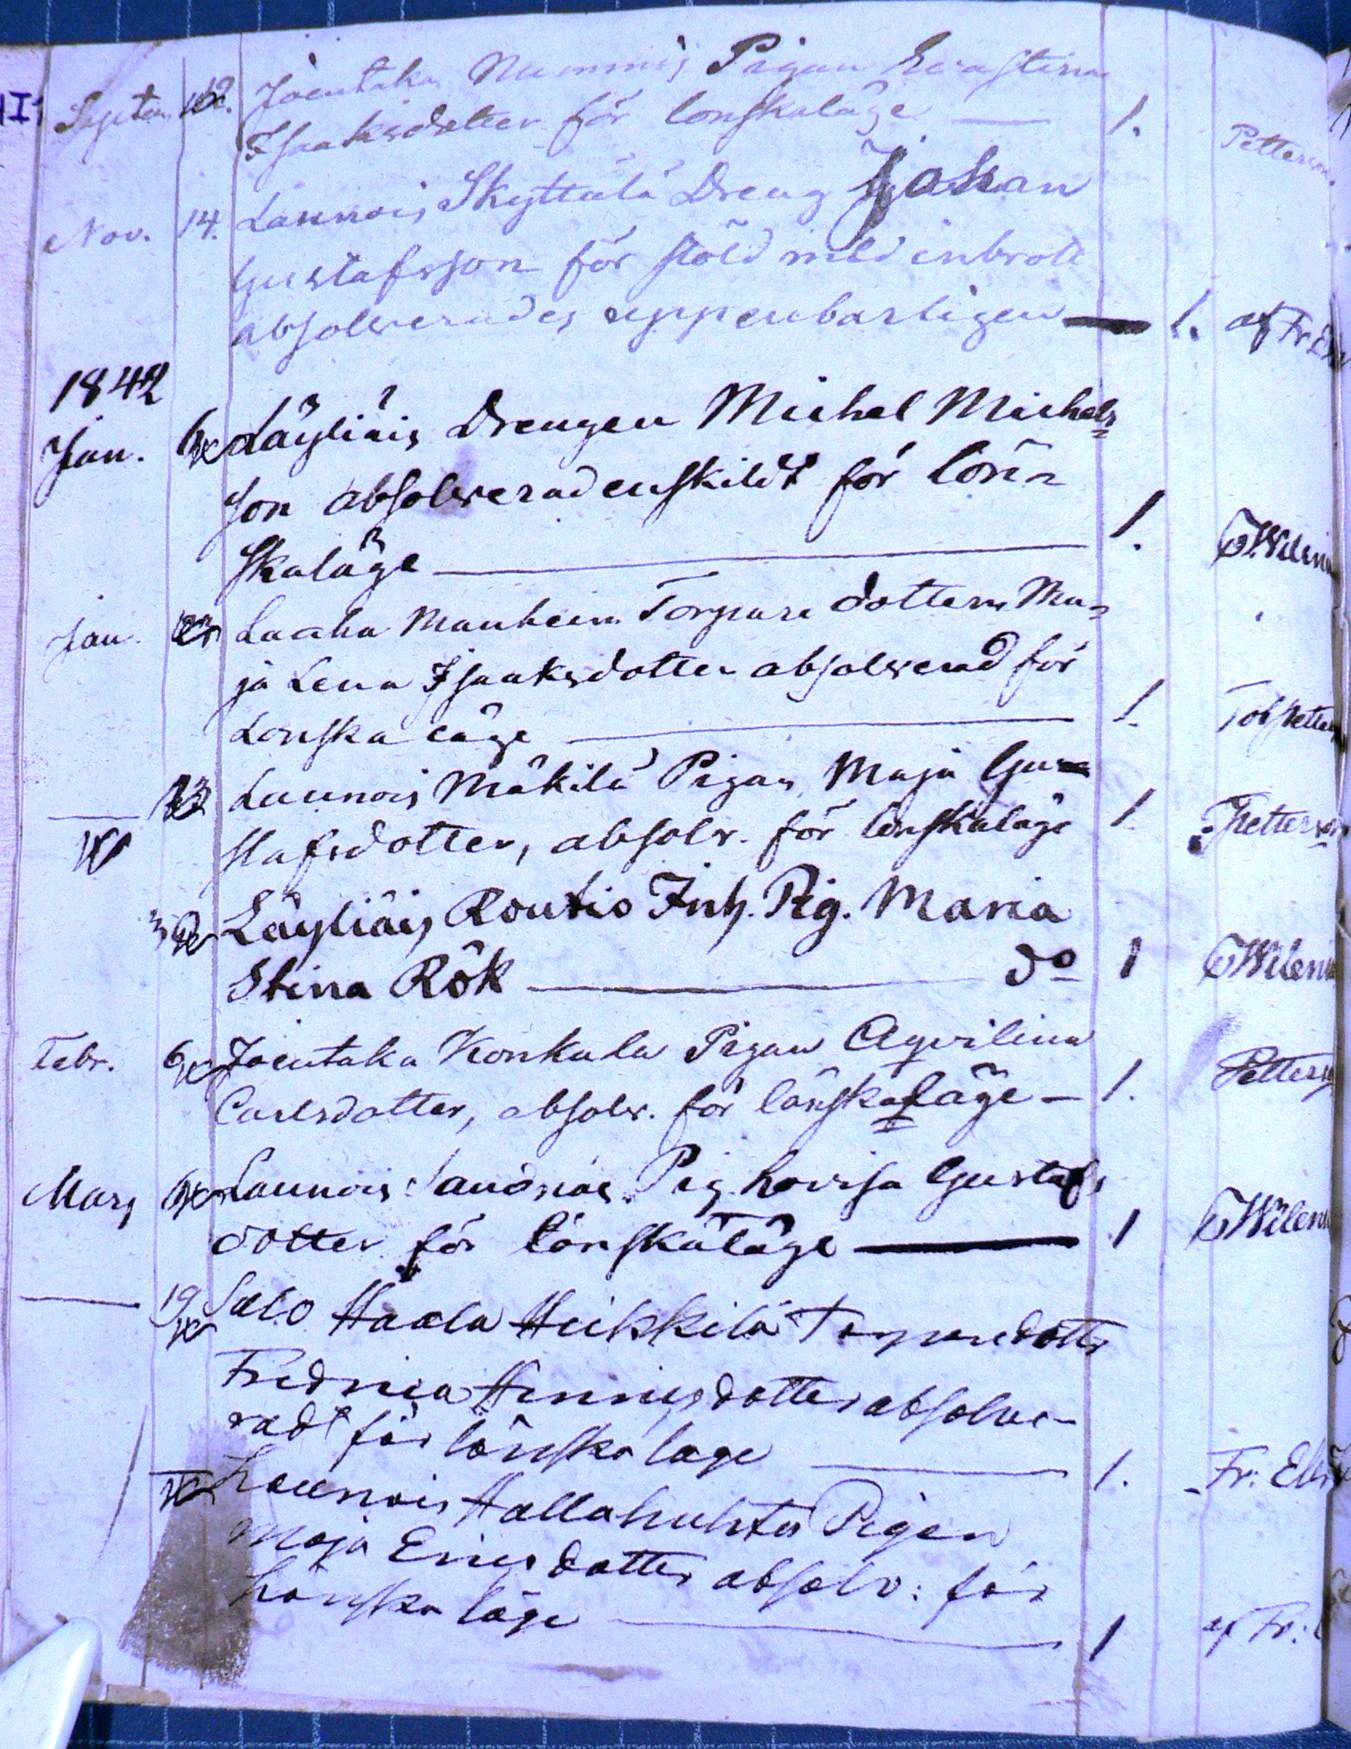 Septem. 12. Joentaka Nummis Pigan Evastina
Isaaksdotter för lönskaläge — 1. Petterson.
Nov. 14. Launois Skyttälä Dreng Johan
Gustafsson för stöld med inbrott
absolverades uppenbarligen — 1. af Fr.
1842
Jan. Läyliäis Drengen Michel Michels
son absolverad enskildt för löns
skaläge — 1. Wileni
Jan. Laaha Manheim Torpare dottern Ma
ja Lena Isaaksdotter absolverad för
Lönska läge — 1.
Launois Mäkilä Pigan Maja Gu
stafsdotter, absolv. för lönskaläge 1 Petterson
Läyliäis Routio Inh. Pig. Maria
Stina Rök — do 1 Wileni
Febr. 6 Joentaka Konkala Pigan Aqvilina
Carlsdotter, absolv. för lönskaläge — 1. Petters
Mars Launois Pig. Lovisa Gustafs
dotter för lönskaläge — 1 Wileni
19 Salo Haala Heikkilä Torparedottr
Fredrica Henricsdotter absolve
rad för lönska läge — 1. Fr:
Launois Hallahuhta Pigan
Maja Ericsdotter absolv: för
Lönska läge — 1 af Fr: